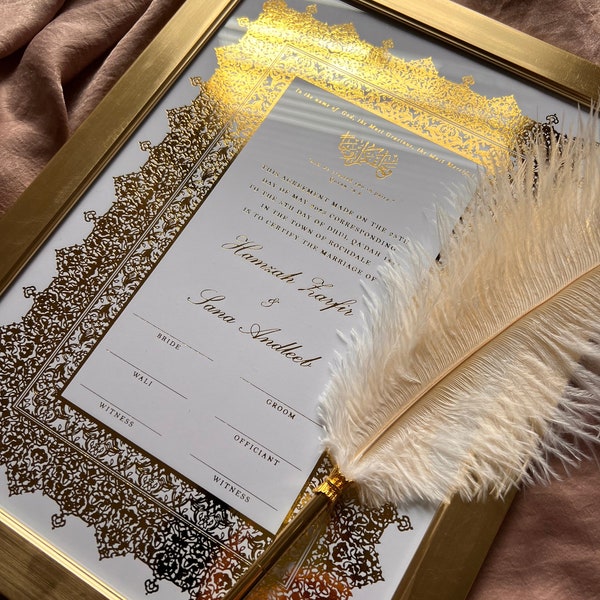 In the name of God, the Most Gracious, the Most Merciful
THIS AGREEMENT MADE ON THE 25TH
DAY OF MAY 2023 CORRESPONDING
TO THE 5TH DAY OF DHUL QA'DAH
IN THE TOWN OF ROCHDALE
IS TO CERTIFY THE MARRIAGE OF
Hamzah Zarfir
&
Sana Andleeb
BRIDE
GROOM
WALI
OFFICIANT
WITNESS
WITNESS